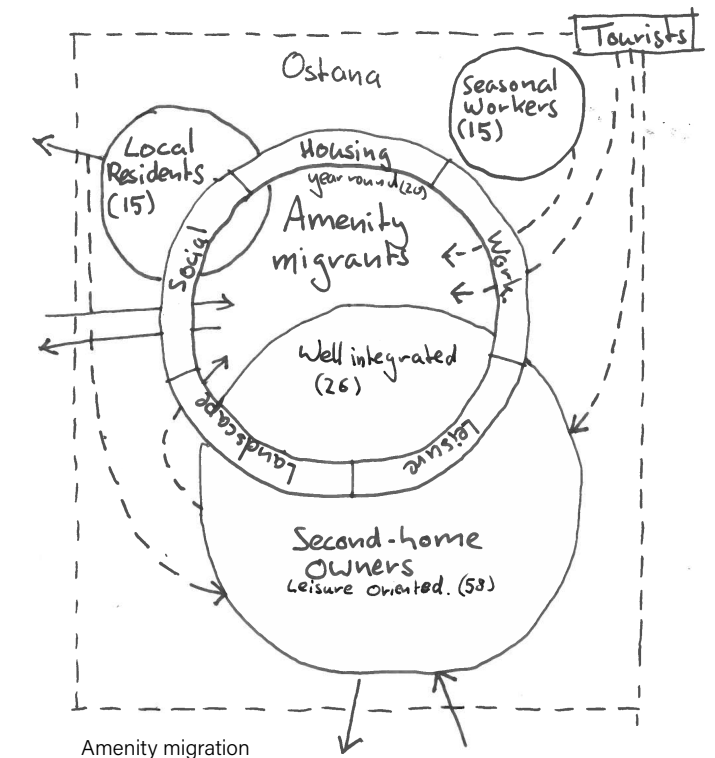 Tourists
Ostana
Seasonal
Workers
(15)
Local
Residents
(15)
Housing
year round (20)
Amenity
migrants
Social
Work.
Well integrated
(26)
Landscape
Leisure
Second-home
owners
Leisure Oriented. (58)
Amenity migration